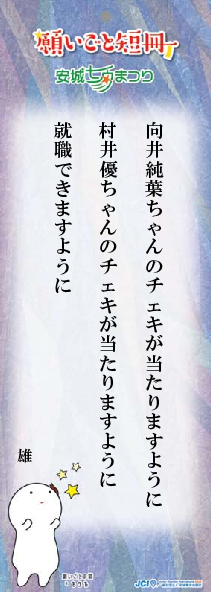 願いごと短冊
安城七夕まつり
向井純葉ちゃんのチェキが当たりますように
村井優ちゃんのチェキが当たりますように
就職できますように
雄
願いごと短冊
JCI